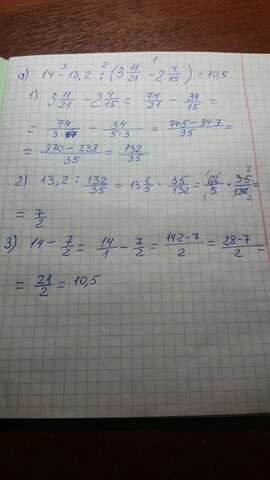 3 2 1
а) 14 - 13,2 : (3 11/21 - 2 4/15) = 10,5
1) 3 11/21 - 2 4/15 = 74/21 - 34/15 =
= 74/3·7 - 34/5·3 = 74·5-34·7/35 =
= 370-238/35 = 132/35
2) 13,2 : 132/35 = 13 1/5 · 35/132 = 66/5 · 35/132 =
= 7/2
3) 14 - 7/2 = 14/1 - 7/2 = 14·2-7/2 = 28-7/2 =
= 21/2 = 10,5